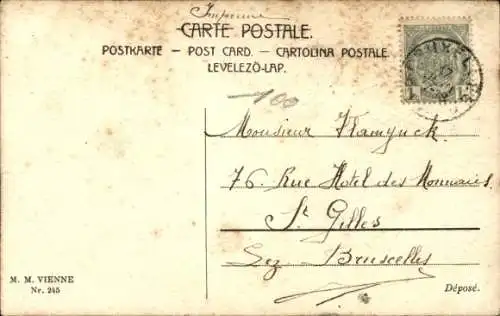 Imprimé
CARTE POSTALE.
POSTKARTE – POST CARD. – CARTOLINA POSTALE.
LEVELEZŐ-LAP.
100
Monsieur Vlamynck
76. Rue Hôtel des Monnaies.
St Gilles
Lez Bruxelles
M. M. VIENNE
Nr. 245
Déposé.